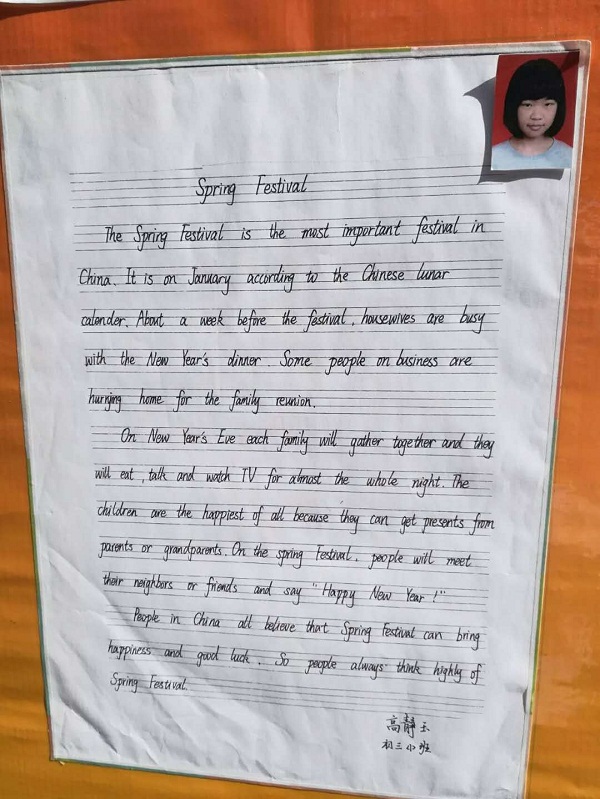 Spring Festival
The Spring Festival is the most important festival in
China. It is on January according to the Chinese lunar
calender. About a week before the festival, housewives are busy
with the New Year's dinner. Some people on business are
hurrying home for the family reunion.
On New Year's Eve each family will gather together and they
will eat, talk and watch TV for almost the whole night. The
children are the happiest of all because they can get presents from
parents or grandparents. On the spring Festival, people will meet
their neighbors or friends and say "Happy New Year!"
People in China all believe that Spring Festival can bring
happiness and good luck. So people always think highly of
Spring Festival.
高静玉
初三小班